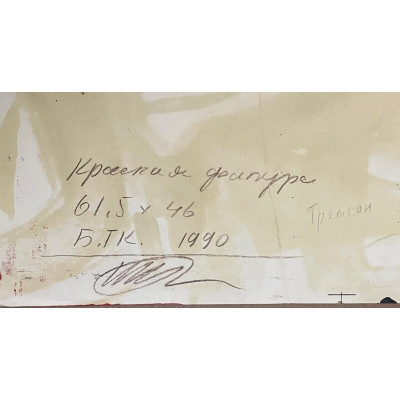 Красная фигура
61,5 х 46
Б.ТК. 1990